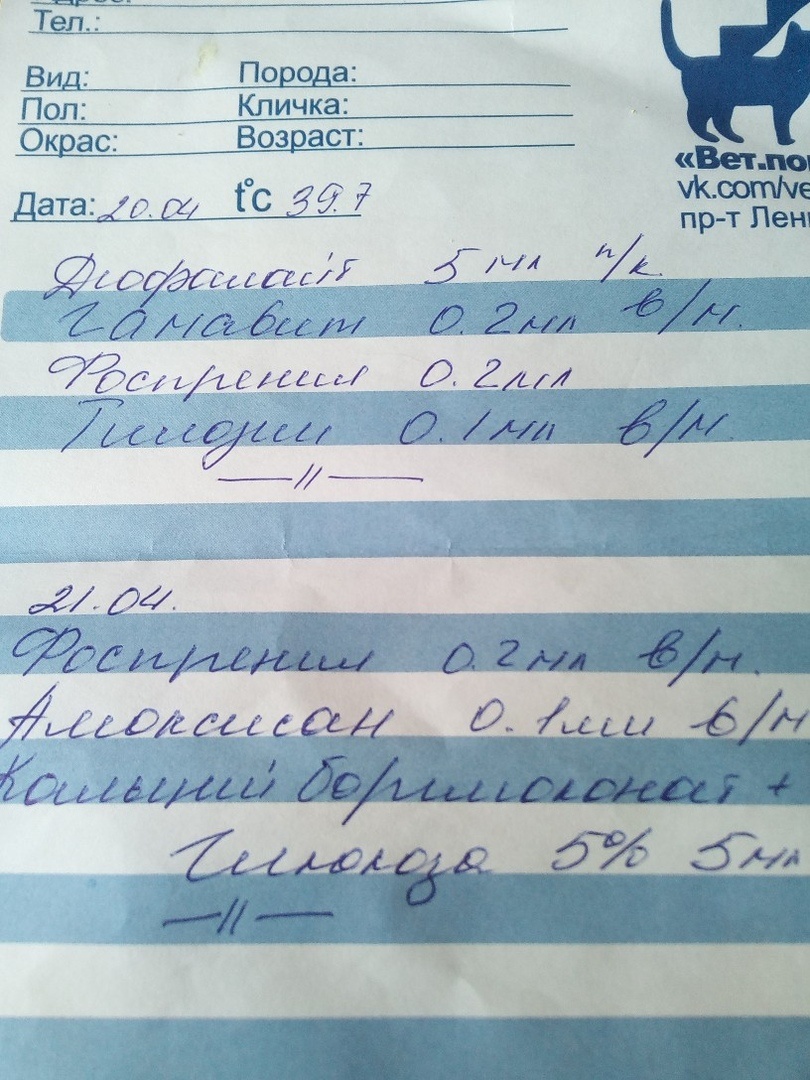 Адрес:
Тел.:
Вид: Порода:
Пол: Кличка:
Окрас: Возраст:
Дата: 20.04 t°C 39.7
«Вет.по
vk.com/ve
пр-т Лен
Дюфалайт 5 мл п/к
Гамавит 0.2 мл в/м.
Фоспренил 0.2 мл
Тилозин 0.1 мл в/м.
—//—
21.04.
Фоспренил 0.2 мл в/м.
Амоксисан 0.1 мл в/м
Кальций борглюконат +
Глюкоза 5% 5 мл
—//—